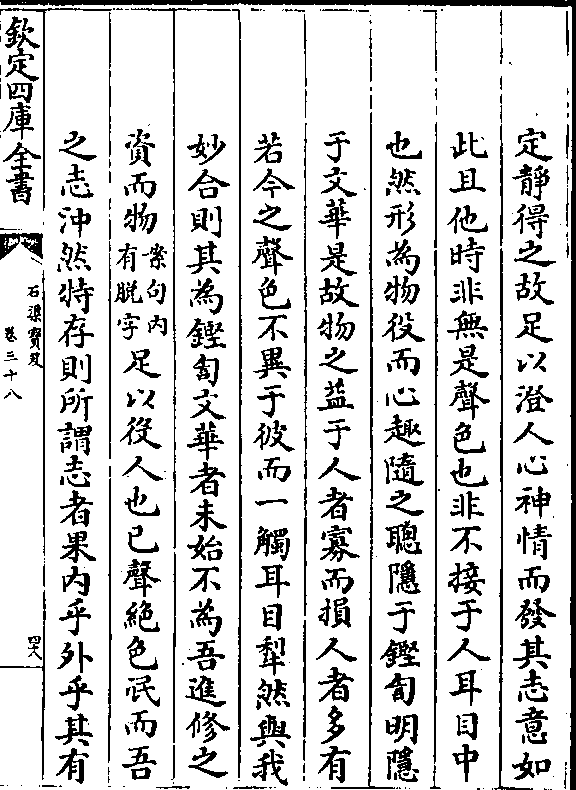 定靜得之故足以澄人心神情而發其志意如
此且他時非無是聲色也非不接于人耳目中
也然形為物役而心趣隨之聰隱于鏗訇明隱
于文華是故物之益于人者寡而損人者多有
若今之聲色不異于彼而一觸耳目犁然與我
妙合則其為鏗訇文華者未始不為吾進修之
資而物案句内有脫字足以役人也已聲絶色泯而吾
之志沖然特存則所謂志者果内乎外乎其有
欽定四庫全書
石渠寶笈
卷三十八
四八